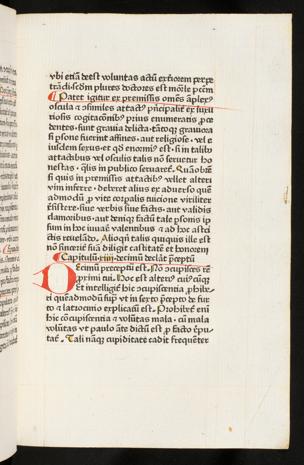 vbi etiā deest voluntas actū exteriorem perpe
trādi. scd̄m plures doctores est mortale p̄cm
¶ Patet igitur ex premissis omēs āplex9
oscula & similes attact9 prīcipalit̄ ex luxu
riosis cogitacōnib9 prius enumeratis pce
dentes. sunt grauia delicta.
si psone fuerint affines. aut religiose. vel e
iusdem sexus. et qd̄ enormi9 est. si in talib9
attactibus vel osculis talis nō seruetur ho
nestas. qualis in publico seruaret᷑.
si quis in premissis attactib9 vellet alteri
vim inferre. deberet alius ex aduerso quē
admodū p vite corpalis tuicione viriliter
resistere. siue verbis siue factis. aut validis
clamoribus. aut deniq3 factū tale psonis ip
sum in hoc iuuare valentibus & ad hoc asci
tis reuelādo. Alioq̄n talis quisquis ille est
nō sincere sua diligit castitatē et honorem
¶ Capitulū. xiiij. decimū declarat p̄ceptū
Decimū preceptū est. Nō ōcupisces rē
pximi tui. Hoc est alteri9 cui9cūq3
et intelligit᷑ hic ōcupiscentia phibe
ri quēadmodū sup9 vt in sexto p̄cepto de fur
to & latrocinio explicatū est. Prohibet᷑ eni
hic cōcupiscentia & volūtas mala. cū mala
volūtas vt paulo āte dictū est p facto repu
tat᷑. Tali nāq3 cupiditate cadit frequēter